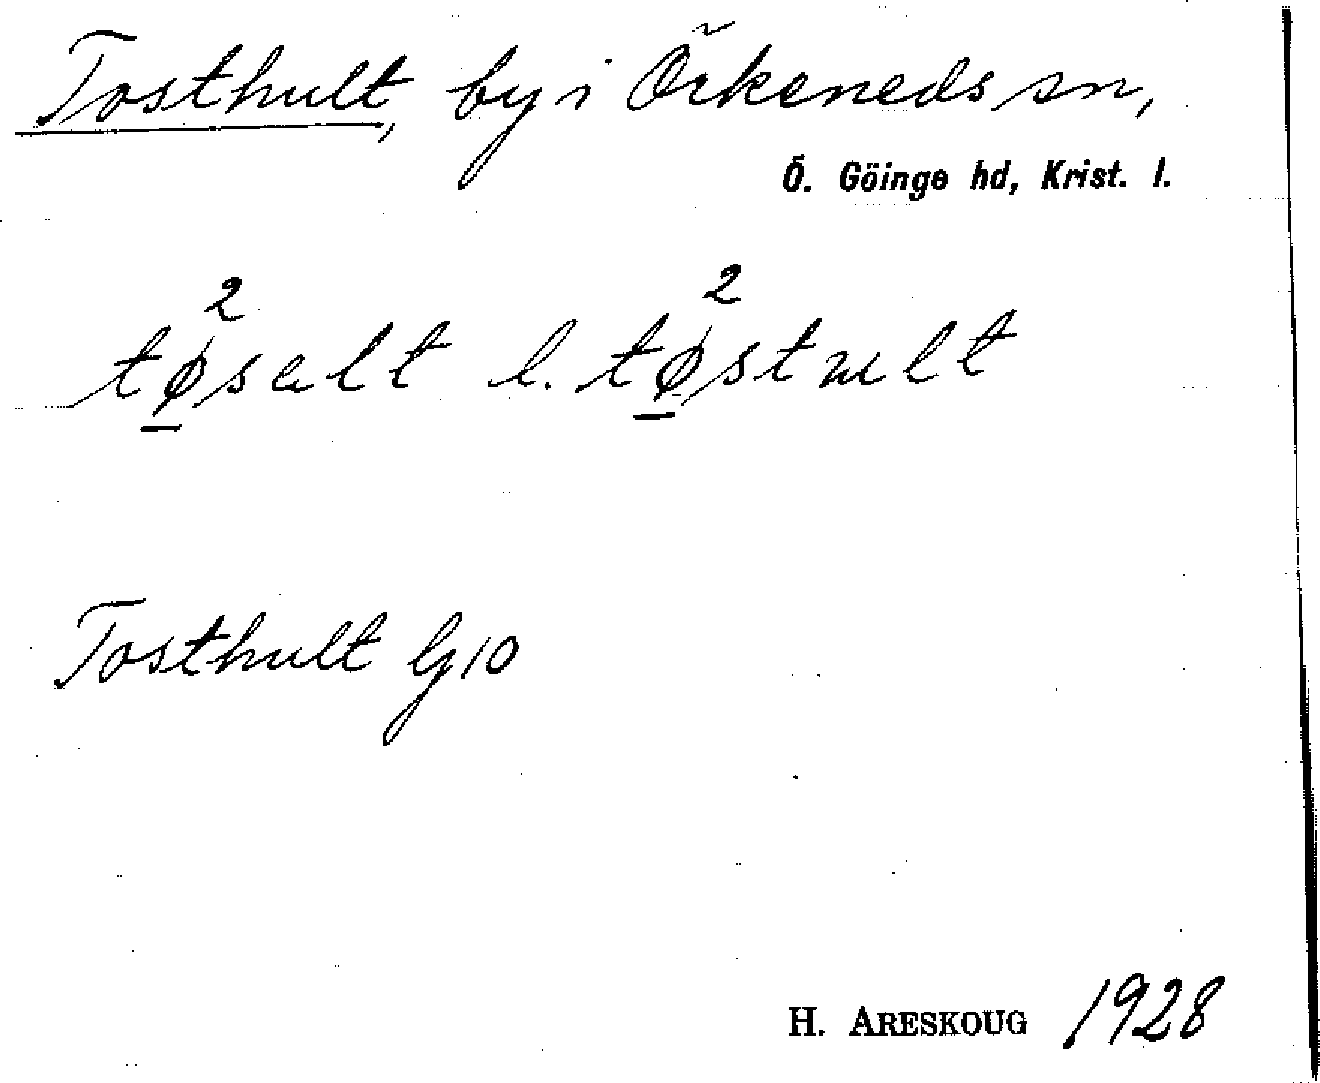 Tosthult, by i Örkeneds sn,
Ö. Göinge hd, Krist. l.
tø̠²sult l. tø̠²stult
Tosthult G10
H. ARESKOUG 1928